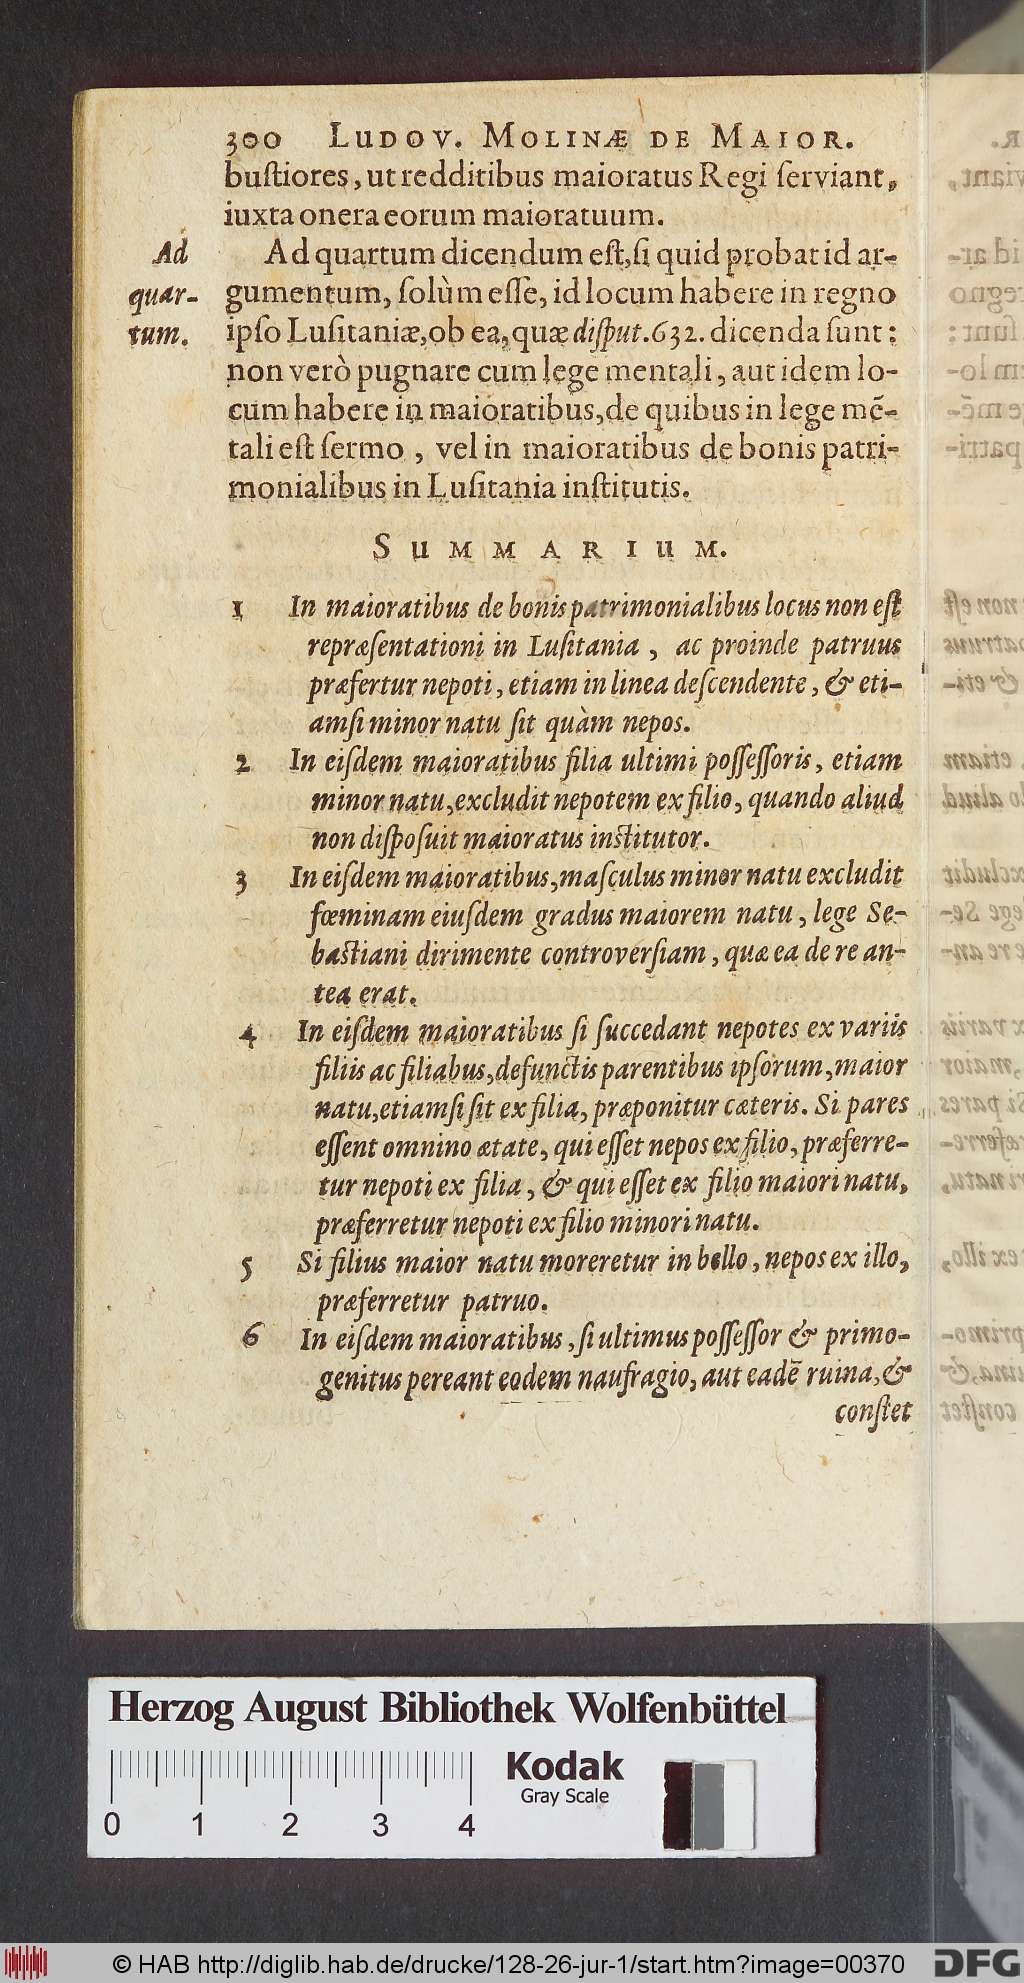 300 LUDOV. MOLINÆ DE MAIOR.
buſtiores, ut redditibus maioratus Regi ſerviant,
iuxta onera eorum maioratuum.
Ad quartum.
Ad quartum dicendum eſt, ſi quid probat id ar-
gumentum, ſolùm eſſe, id locum habere in regno
ipſo Luſitaniæ, ob ea, quæ diſput. 632. dicenda ſunt:
non verò pugnare cum lege mentali, aut idem lo-
cum habere in maioratibus, de quibus in lege mẽ-
tali eſt ſermo, vel in maioratibus de bonis patri-
monialibus in Luſitania inſtitutis.
SUMMARIUM.
1 In maioratibus de bonis patrimonialibus locus non eſt
repræſentationi in Luſitania, ac proinde patruus
præfertur nepoti, etiam in linea deſcendente, & eti-
amſi minor natu ſit quàm nepos.
2 In eiſdem maioratibus filia ultimi poſſeſſoris, etiam
minor natu, excludit nepotem ex filio, quando aliud
non diſpoſuit maioratus inſtitutor.
3 In eiſdem maioratibus, maſculus minor natu excludit
fœminam eiuſdem gradus maiorem natu, lege Se-
baſtiani dirimente controverſiam, quæ ea de re an-
tea erat.
4 In eiſdem maioratibus ſi ſuccedant nepotes ex variis
filiis ac filiabus, defunctis parentibus ipſorum, maior
natu, etiamſi ſit ex filia, præponitur cæteris. Si pares
eſſent omnino ætate, qui eſſet nepos ex filio, præferre-
tur nepoti ex filia, & qui eſſet ex filio maiori natu,
præferretur nepoti ex filio minori natu.
5 Si filius maior natu moreretur in bello, nepos ex illo,
præferretur patruo.
6 In eiſdem maioratibus, ſi ultimus poſſeſſor & primo-
genitus pereant eodem naufragio, aut eadẽ ruina, &
conſtet
Herzog August Bibliothek Wolfenbüttel
Kodak
Gray Scale
0 1 2 3 4
© HAB http://diglib.hab.de/drucke/128-26-jur-1/start.htm?image=00370
DFG